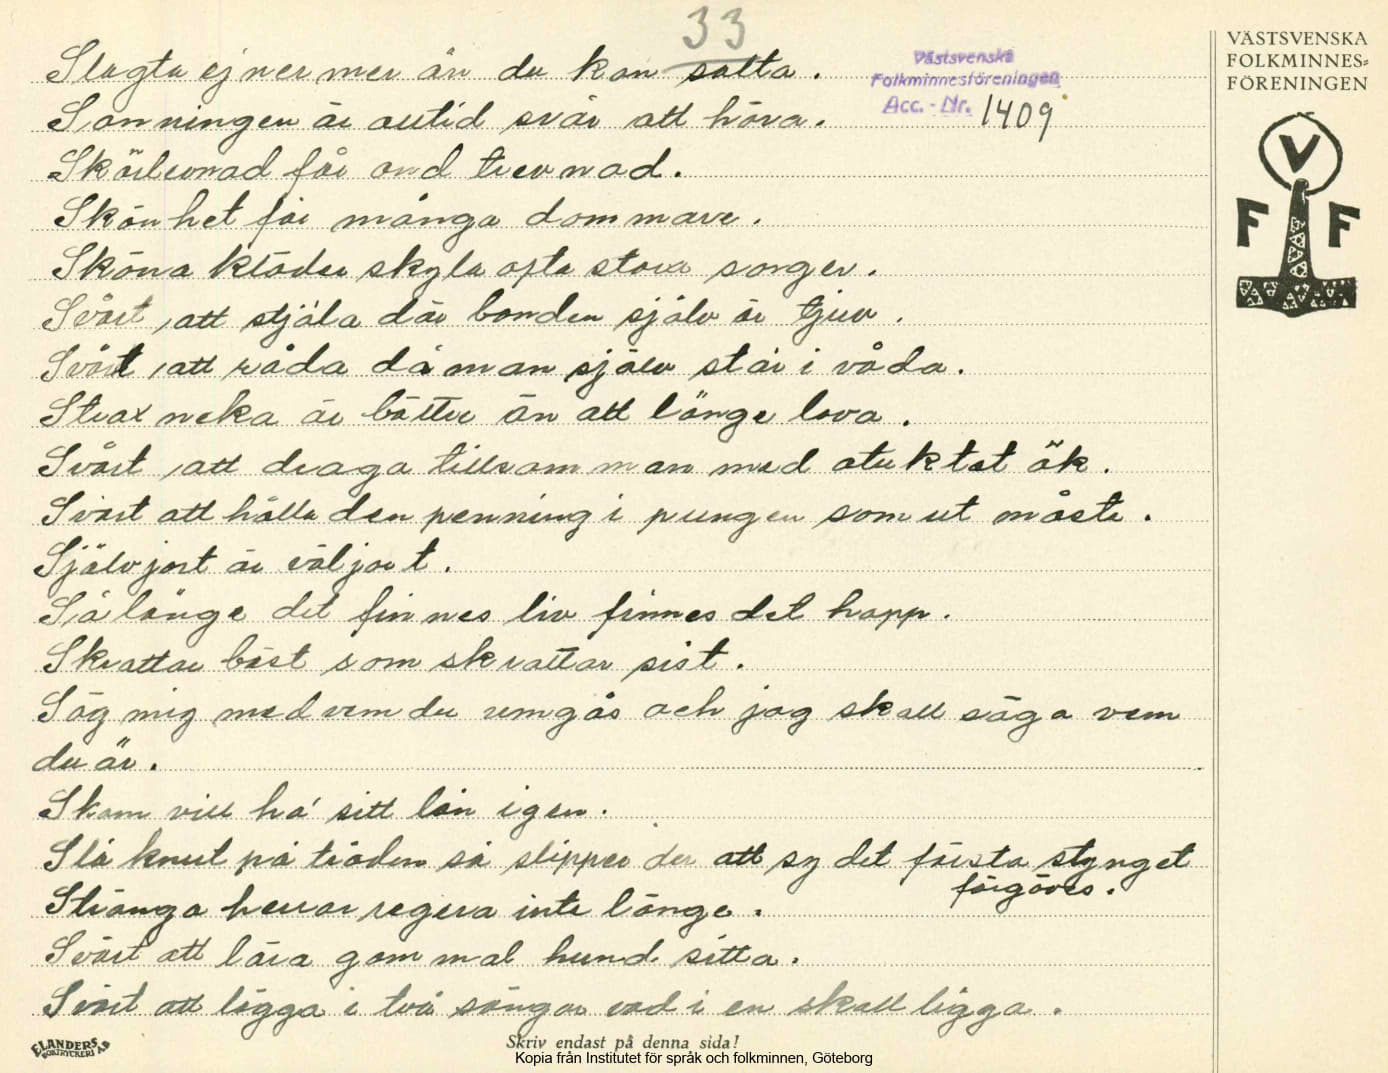 33
VÄSTSVENSKA
FOLKMINNES=
FÖRENINGEN
Västsvenska
Folkminnesföreningen
Acc. - Nr. 1409
V
F F
Slagta ej ner mer än du kan salta.
Sanningen är alltid svår att höra.
Skörlevnad får ond trevnad.
Skönhet får många dommare.
Sköna kläder skyla ofta stora sorger.
Svårt, att stjäla där bonden själv är tjuv.
Svårt, att råda då man själv står i våda.
Strax neka är bättre än att länge lova.
Svårt, att draga tillsamman med otuktat ök.
Svårt att hålla den penning i pungen som ut måste.
Självjort är väljort.
Så länge det finnes liv finnes det hopp.
Skrattar bäst som skrattar sist.
Säg mig med vem du umgås och jag skall säga vem
du är.
Skam vill ha' sitt lån igen.
Slå knut på tråden så slipper du att sy det första stynget
förgäves.
Stränga herrar regera inte länge.
Svårt att lära gammal hund sitta.
Svårt att lägga i två sängar vad i en skall ligga.
ELANDERS
BOKTRYCKERI AB
Skriv endast på denna sida!
Kopia från Institutet för språk och folkminnen, Göteborg